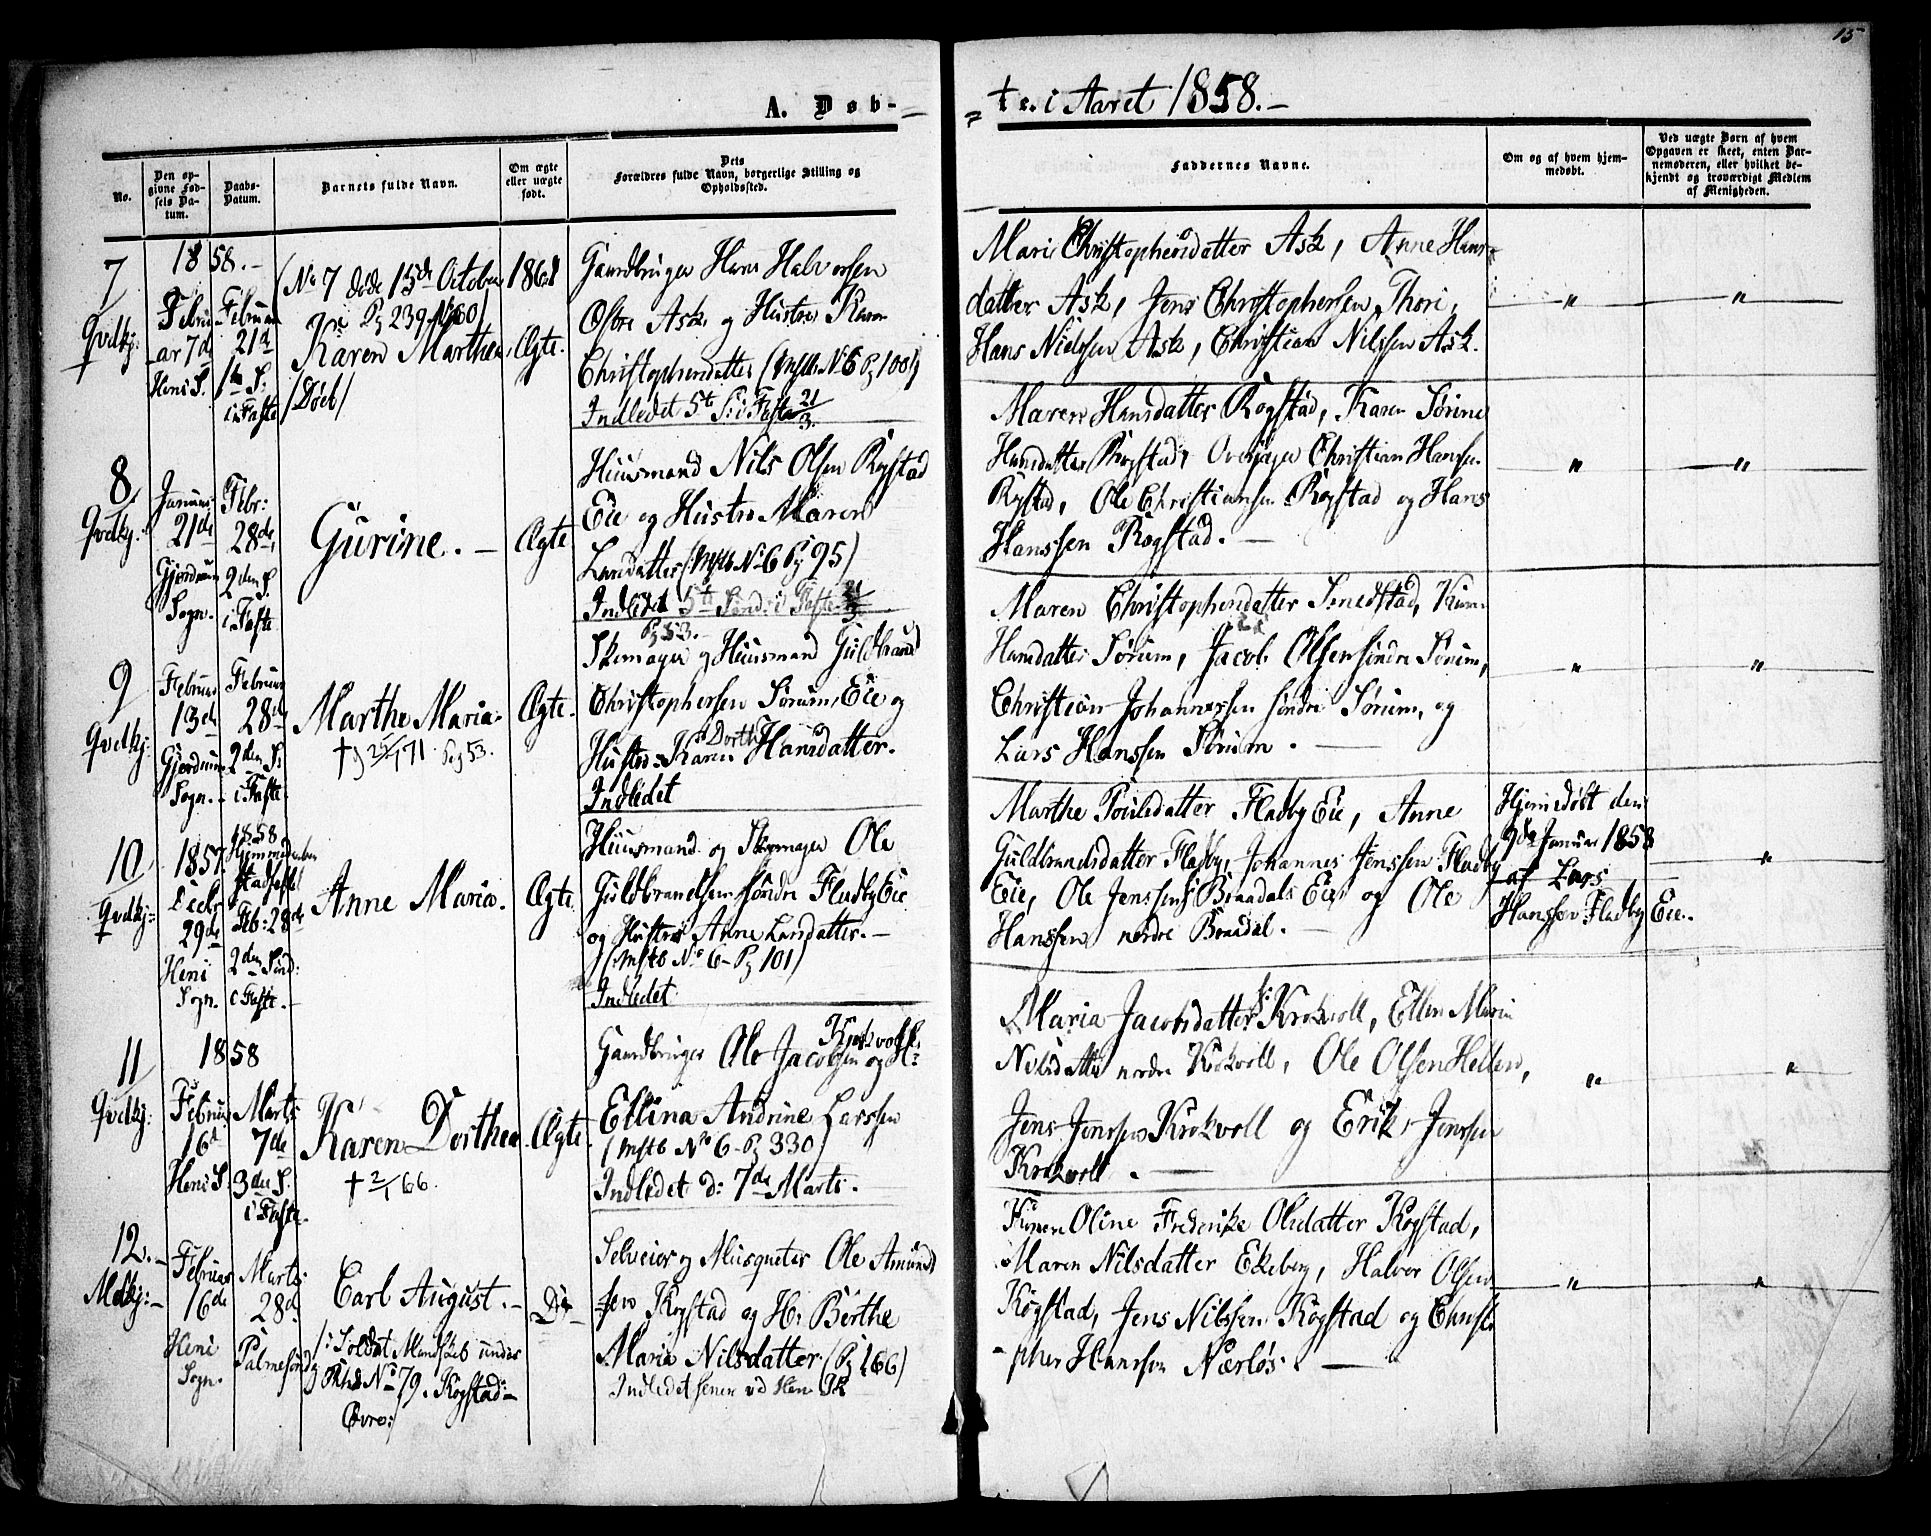 15
A. Døb-
te i Aaret 1858.-
No.
Den opgivne Fødsels Datum.
Daabs-Datum.
Barnets fulde Navn.
Om ægte eller uægte født.
Dets Forældres fulde Navn, borgerlige Stilling og Opholdssted.
Faddernes Navne.
Om og af hvem hjemmedøbt.
Ved uægte Børn af hvem Opgaven er skeet, enten Barnemoderen, eller hvilket bekjendt og troværdigt Medlem af Menigheden.
7
Qvdkj:
1858.-
Februar 7d
Heni S.
Februar 21d
1ste S: i Faste
(No 7 døde 15de October 1861
Pg 239 No 60)
Karen Marthea,
/Døeb/
Ægte.
Gaardbruger Hans Halvorsen
Østre Ask og Hustru Karen
Christophersdatter (Mstb. No 6 Pg 100)
Indledet 5te S: i Faste 21/3.
Mari Christophersdatter Ask, Anne Hans-
datter Ask, Jens Christophersen Thori,
Hans Nielssen Ask, Christian Nilssen Ask.
"
"
8
Qvdkj:
Januar 21de
Gjerdrum Sogn.
Febr: 28de,
2den S. i Faste
Gurine. -
Ægte
Huusmand Nils Olsen Rogstad
Eie og Hustru Maren
Larsdatter (Mstb No 6 Pg 95)
Indledet 5te Sønd: i Faste 21/3
Maren Hansdatter Rogstad, Karen Sørine
Hansdatter Rogstad, Christian Hansen
Rogstad, Ole Christiansen Rogstad og Hans
Hanssen Rogstad. -
"
"
9
Qvdkj:
Februar 13de
Gjerdrum Sogn.
Februar 28de
2den S: i Faste
Marthe Maria.
† 71 Pg 53.
Ægte.
Pg 53.-
Skomager og Huusmand Guldbrand
Christophersen Sørum, Eie og
Hustro Karen Dorth. Hansdatter.
Indledet
Maren Christophersdatter
Hansdatter Sørum, Jacob Olsen søndre Sørum,
Christian Johannessen søndre Sørum, og
Lars Hanssen Sørum. -
"
"
10
Qvdkj:
1857.
Decbr 29de
Heni Sogn.
1858
Feb: 28de
2den Sønd: i Faste.-
Anne Maria.
Ægte
Huusmand og Skomager Ole
Guldbrandsen søndre Fladby Eie
og Hustru Anne Larsdatter.-
(Mstb No 6- Pg 101)
Indledet
Marthe Poulsdatter Fladby Eie, Anne
Guldbrandsdatter Fladby, Johannes Jenssen Fladby
Eie, Ole Jenssen Braadals Eie og Ole
Hanssen nordre Braadal. -
Hjemedøbt den
9de Januar 1858
af Lars
Hanssen Fladby Eie.
"
11
Qvdkj:
1858
Februar 16d
Heni S.
Marts 7de
3die S. i Faste.
Karen Dorthea.
† 2/1 66.
Ægte
Gaardbruger Ole Jacobsen Krokvoll og H:
Ellina Andrine Larssen
(Mstb No 6- Pg 330)
Indledet d: 7de Marts.
Maria Jacobsdatter Krokvoll, Ellen Maria
Nilsdatter nordre Krokvoll, Ole Olsen Hellen,
Jens Jenssen Krokvoll og Erik Jenssen
Krokvoll. -
"
"
12.-
Mdkj:-
Februar 16de
Heni Sogn.
Marts 28d.
Palmesøndg
Carl August.-
/: Soldat Mandskab under
No 79. Kogstad
Øvre:/
Do
Selveier og Musqueter Ole Amund-
sen Kogstad og H: Berthe
Maria Nilsdatter (Pg 166)
Indledet
Karen Oline Frederike Olsdatter Kogstad,
Maren Nilsdatter Ekeberg, Halvor Olsen
Kogstad, Jens Nilssen Kogstad og Christo-
pher Hanssen Nærløs. -
"
"